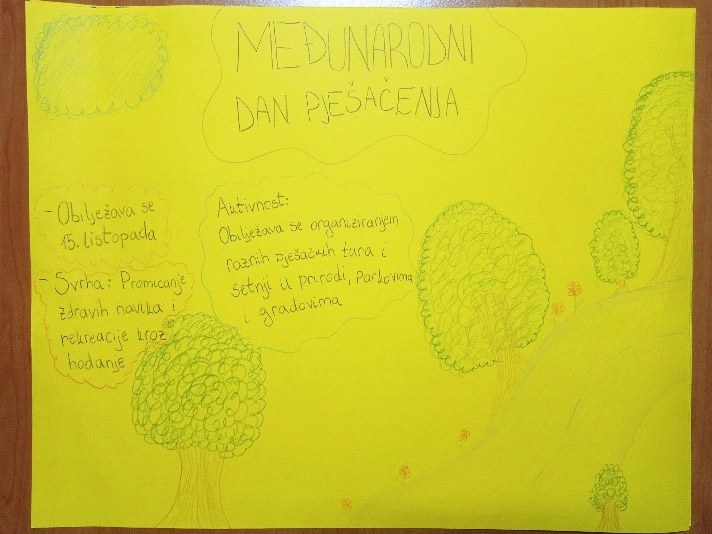 MEĐUNARODNI
DAN PJEŠAČENJA
- Obilježava se
15. listopada
- Svrha: Promicanje
zdravih navika i
rekreacije kroz
hodanje
Aktivnost:
Obilježava se organiziranjem
raznih pješačkih tura i
šetnji u prirodi, parkovima
i gradovima